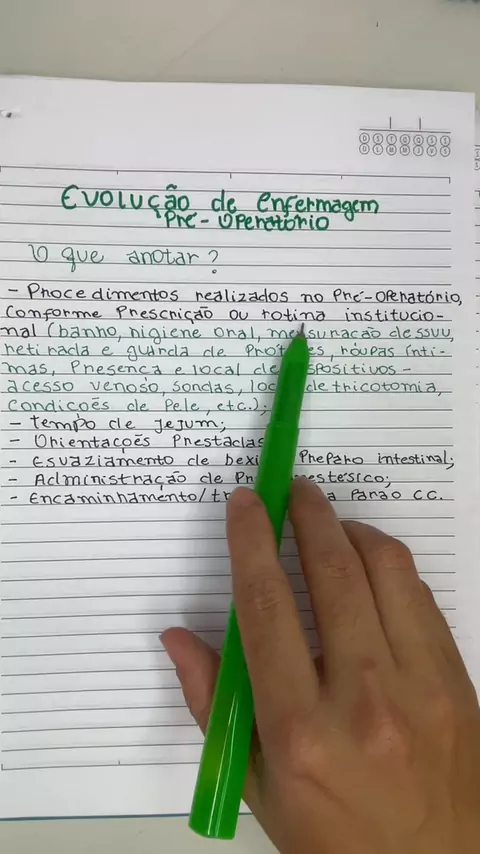 Evolução de enfermagem
Pré-Operatório
O que anotar?
- Procedimentos realizados no Pré-Operatório,
conforme Prescrição ou rotina institucio-
nal (banho, higiene oral, mensuração de SSVV,
retirada e guarda de roupas ínti-
mas, Presença e local de
acesso venoso, sondas, de tricotomia,
condições de Pele, etc.);
- Tempo de Jejum;
- Orientações Prestadas
- Esvaziamento de Preparo intestinal;
- Administração de
- Encaminhamento/ Para o CC.